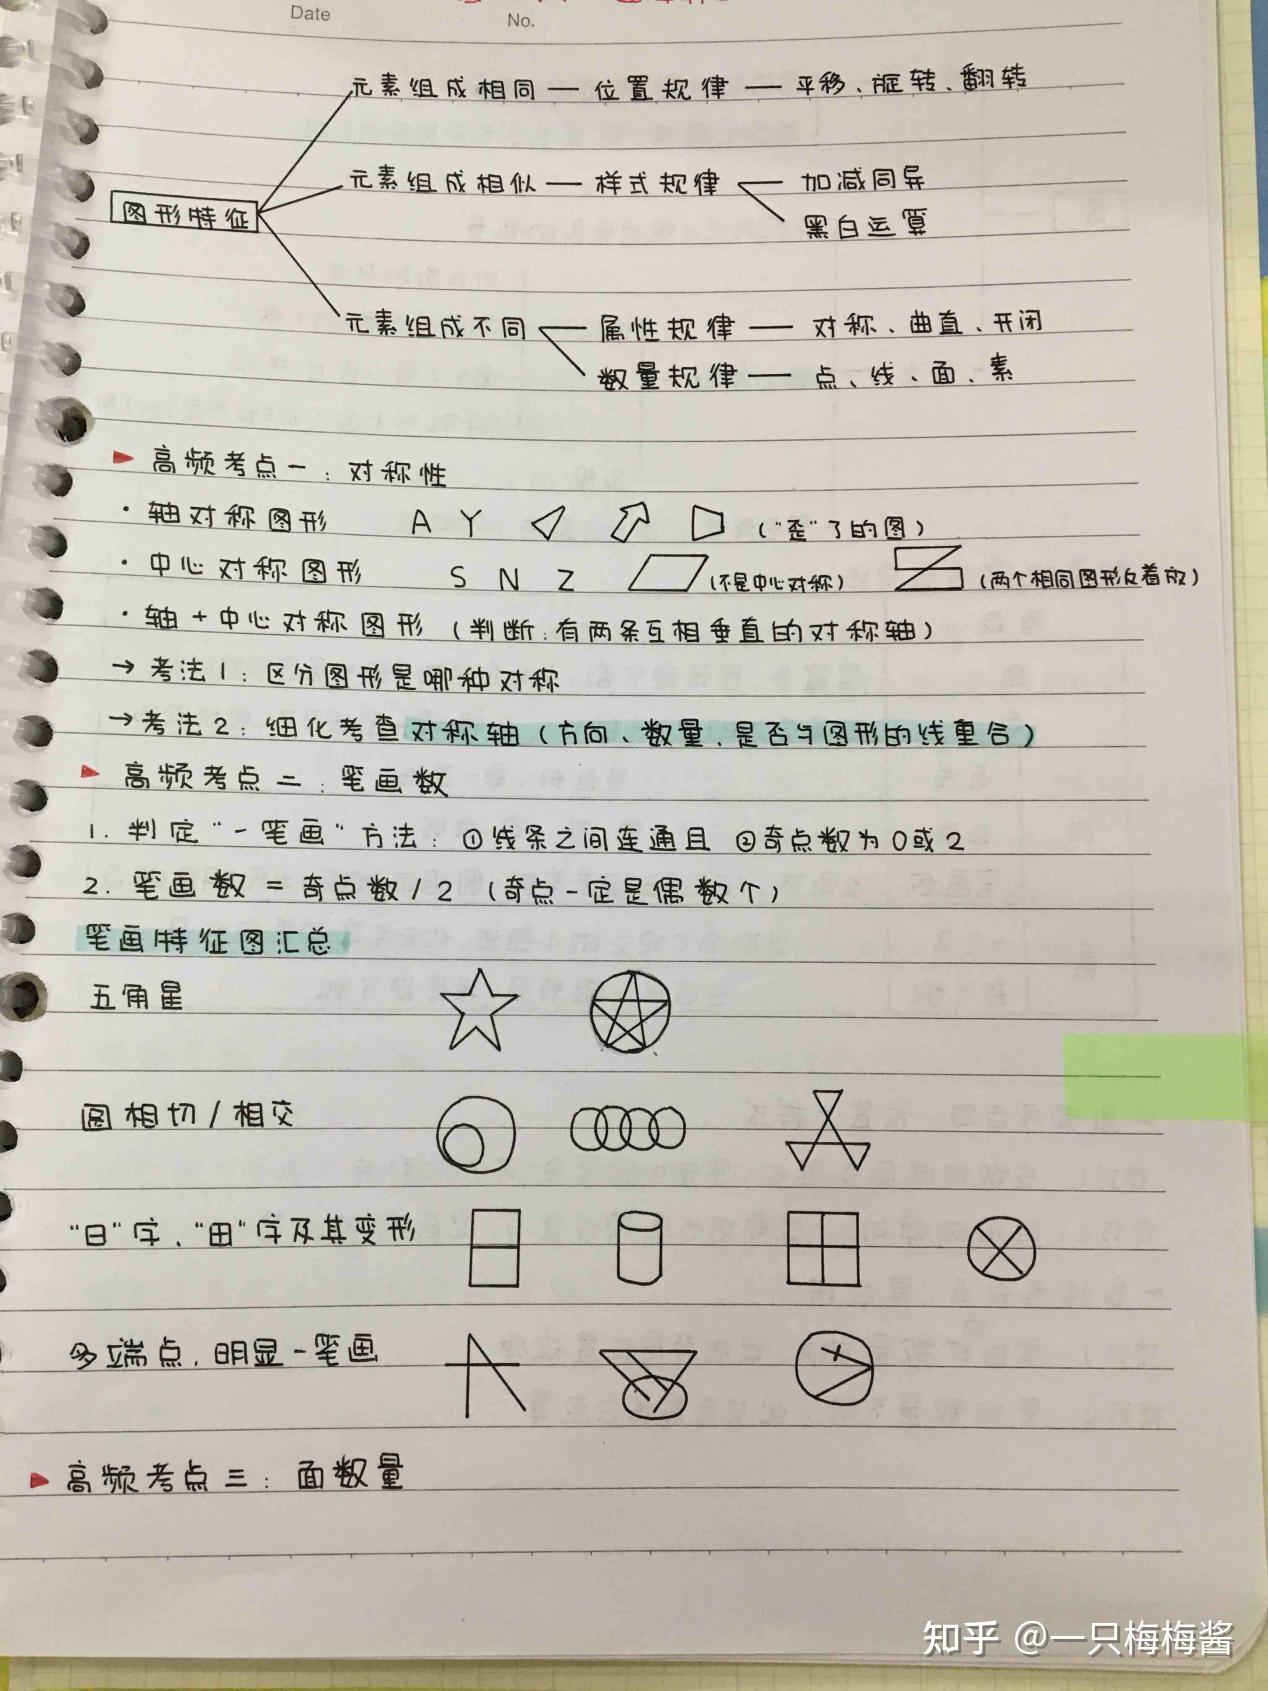 Date
No.
元素组成相同 — 位置规律 — 平移、旋转、翻转
元素组成相似 — 样式规律 — 加减同异
黑白运算
图形特征
元素组成不同 — 属性规律 — 对称、曲直、开闭
数量规律 — 点、线、面、素
高频考点一：对称性
· 轴对称图形 A Y （“歪”了的图）
· 中心对称图形 S N Z （不是中心对称） （两个相同图形反着放）
· 轴+中心对称图形（判断：有两条互相垂直的对称轴）
→ 考法1：区分图形是哪种对称
→ 考法2：细化考查对称轴（方向、数量、是否与图形的线重合）
高频考点二：笔画数
1. 判定“一笔画”方法：①线条之间连通且 ②奇点数为0或2
2. 笔画数 = 奇点数/2（奇点一定是偶数个）
笔画特征图汇总
五角星
圆相切/相交
“日”字、“田”字及其变形
多端点，明显一笔画
高频考点三：面数量
知乎 @一只梅梅酱